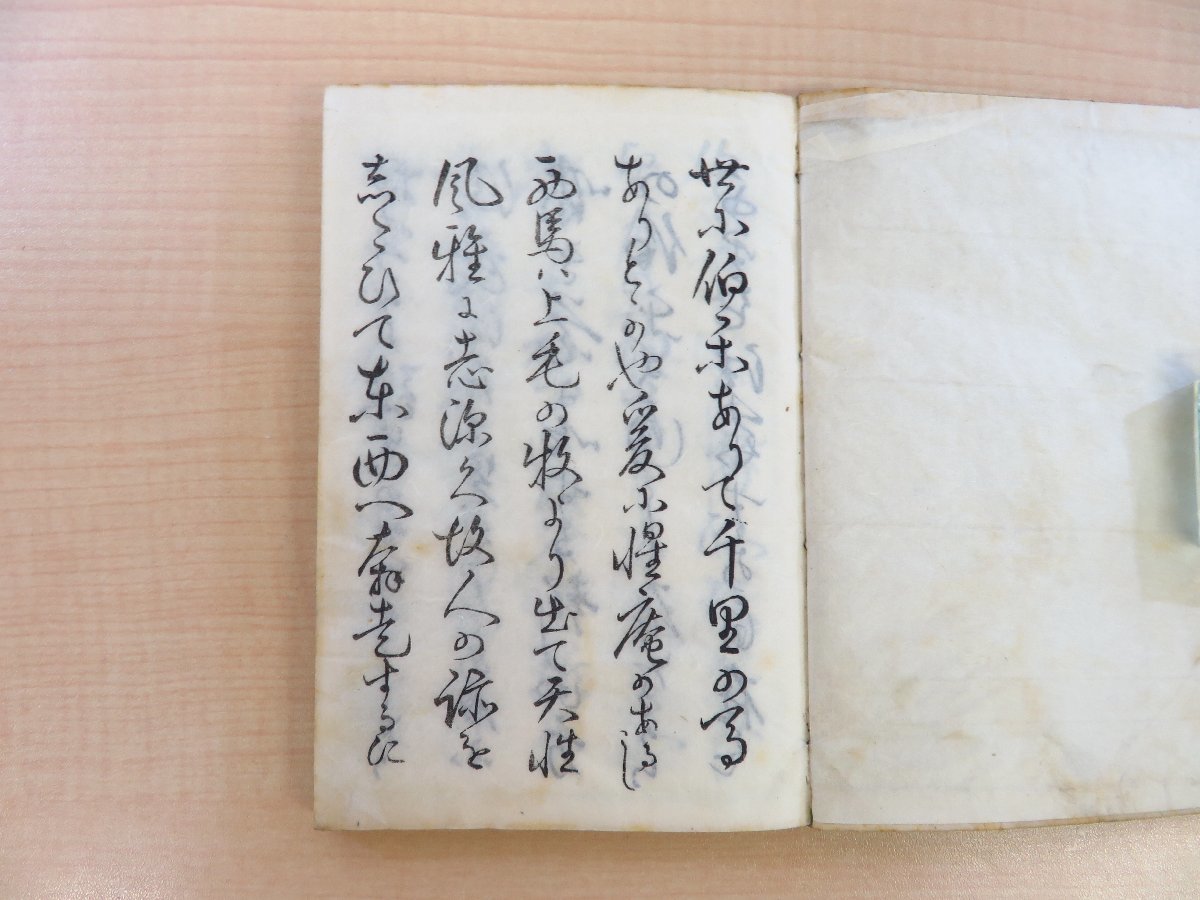 世に伯楽ありて千里の馬
ありとかや爰に惺庵のあるし
西馬は上毛の牧より出て天性
風雅に志深く故人の跡を
志たひて東西へ奔走するに